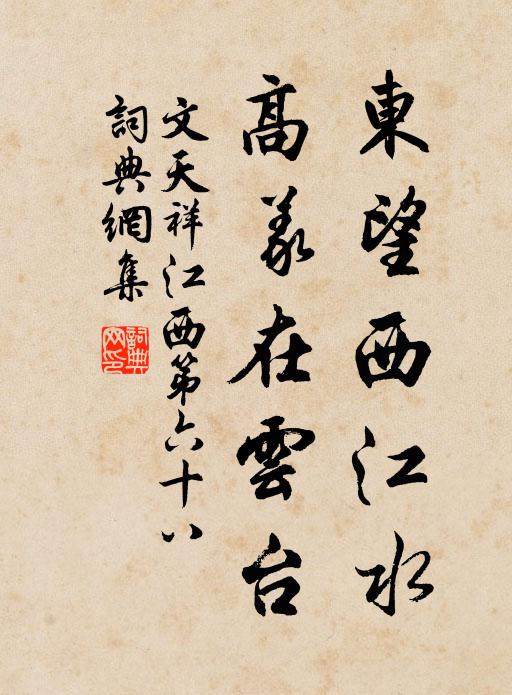 東望西江水
高義在雲台
文天祥江西第六十八
詞典網集
詞典網印